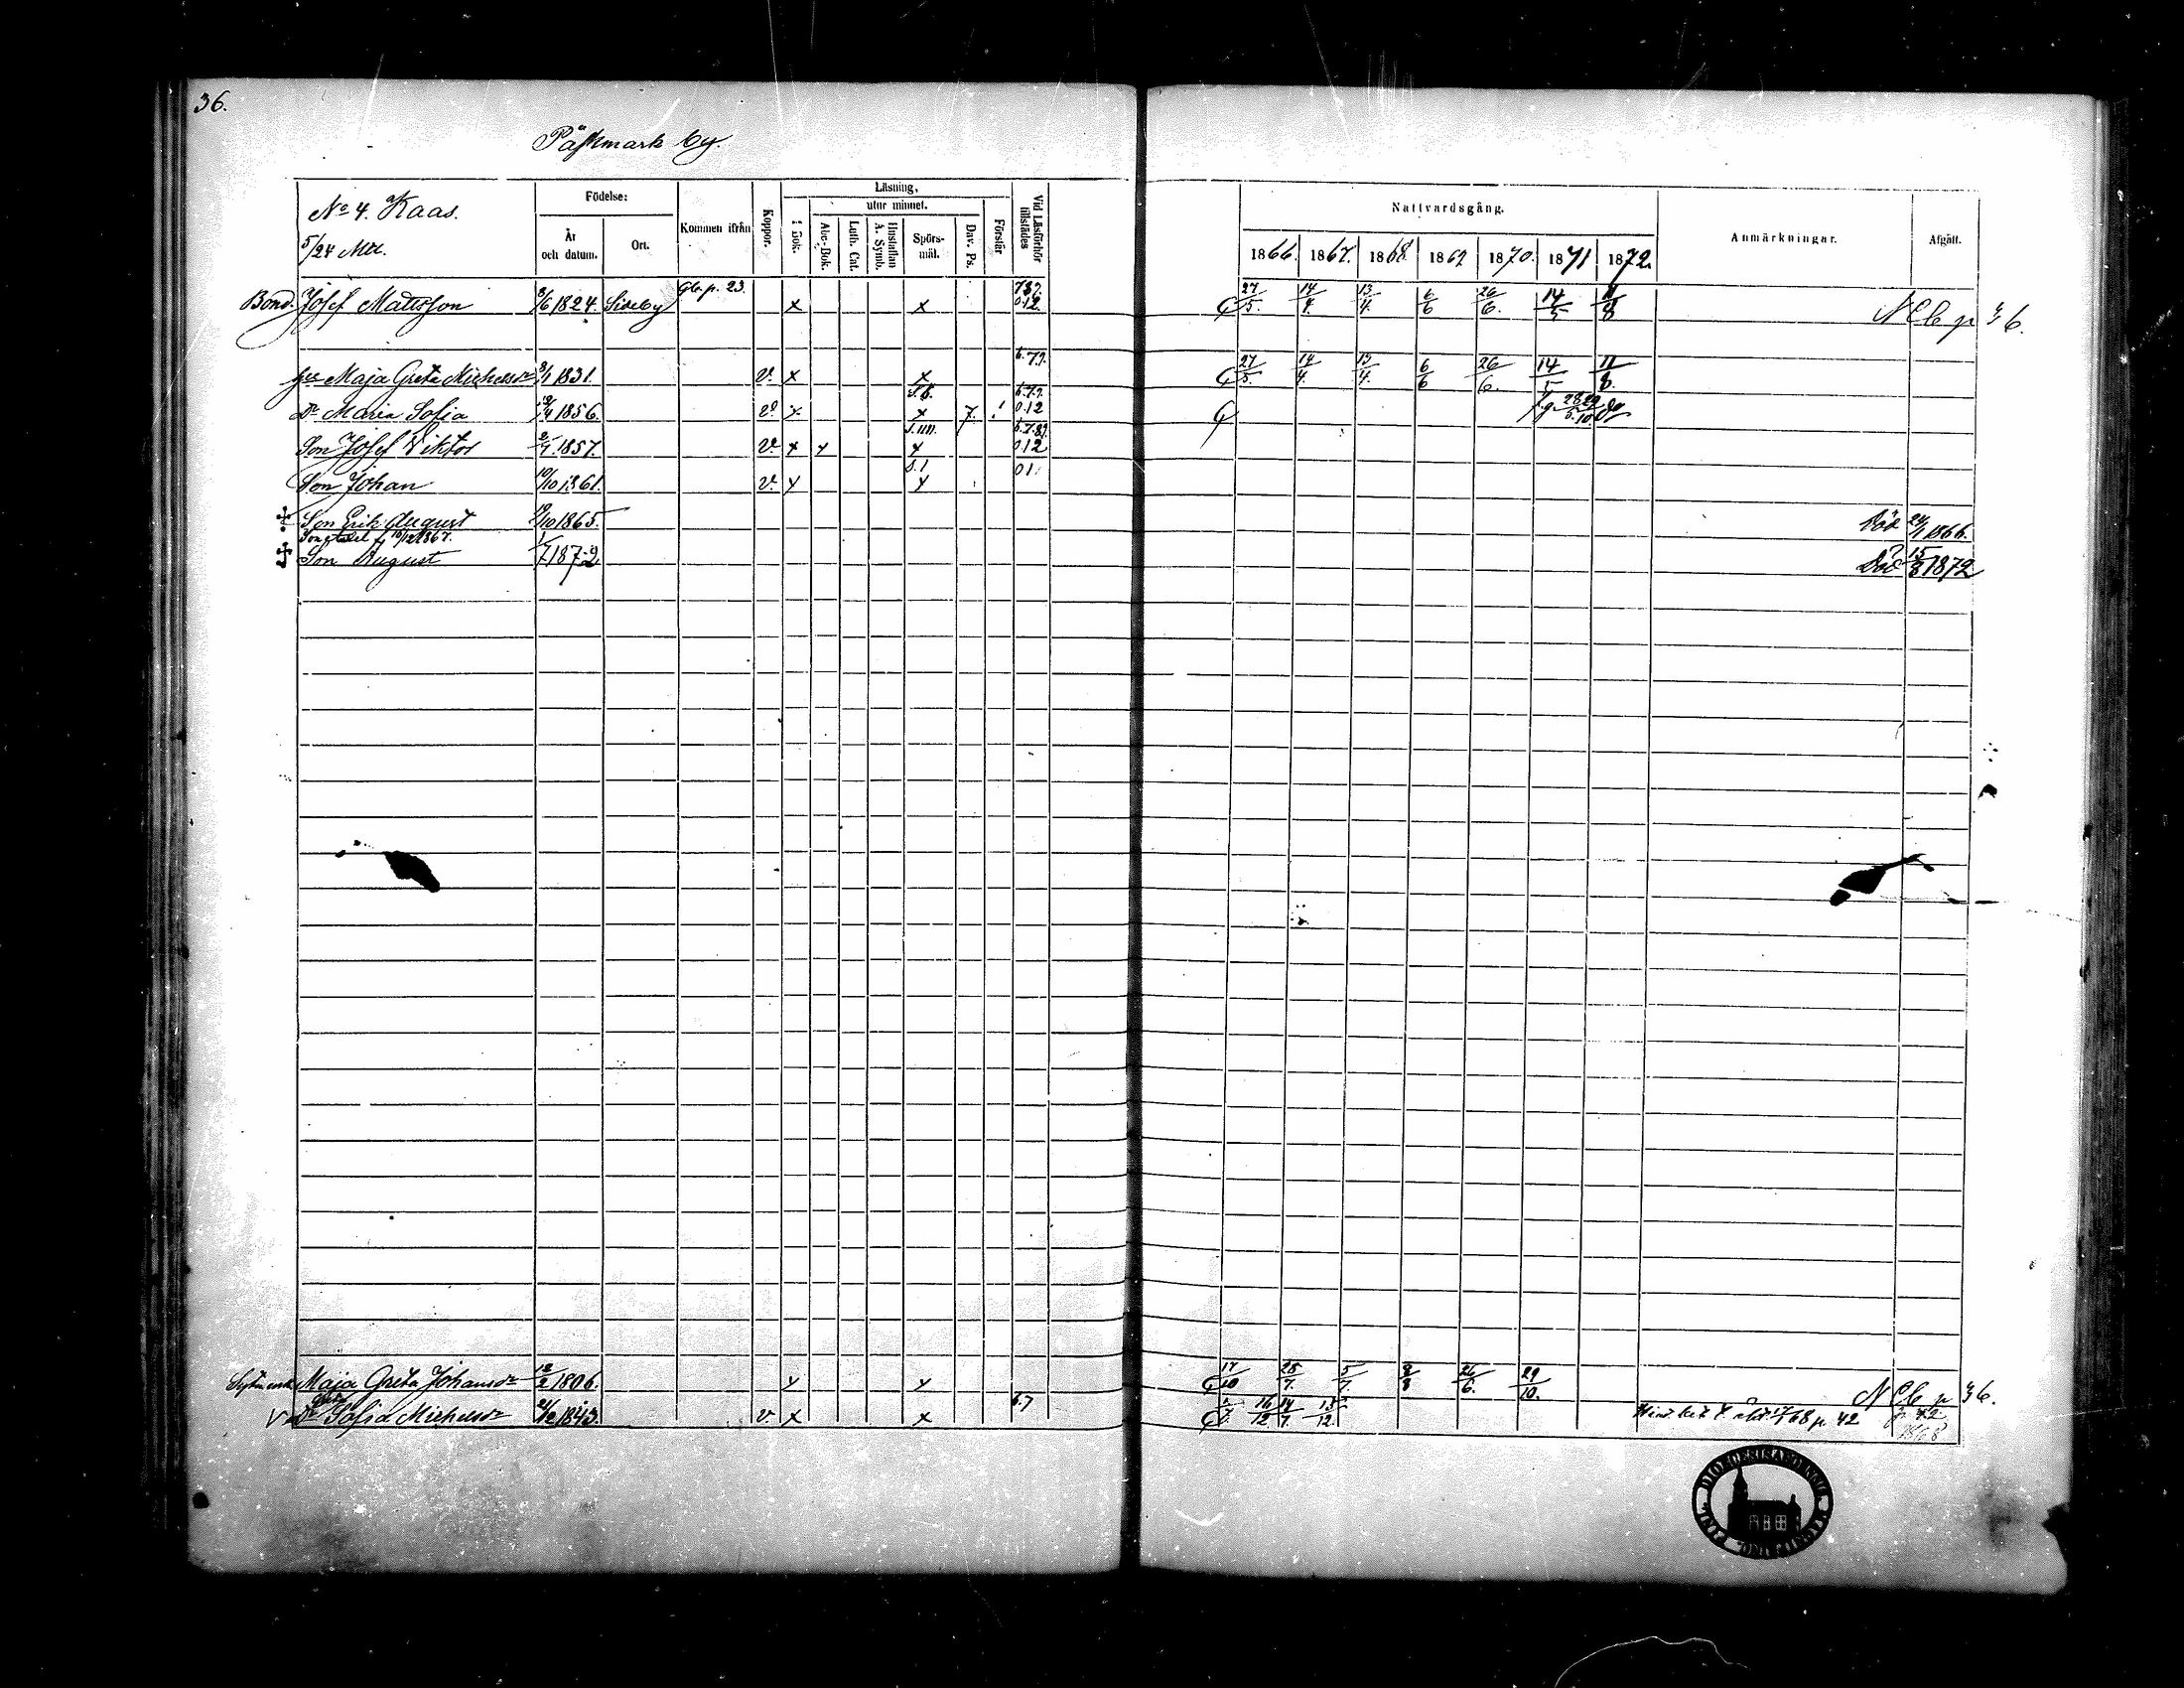 36.
Påskmark by.
No 4. Kaas.
5/24 Mtl.
Födelse:
År och datum.
Ort.
Kommen ifrån
Koppor.
Läsning,
I Bok.
utur minnet.
Abc-Bok.
Luth. Cat.
Hustaflan A. Symb.
Spörs-mål.
Dav. Ps.
Förstår
Vid Läsförhör tillstädes
Nattvardsgång.
1866. 1867. 1868. 1869 1870. 1871 1872.
Anmärkningar.
Afgått.
Bond. Josef Mattsson 8/6 1824. Sideby Gb. p. 23. x x 7.8.9. 0.12. 27/5. 14/4. 13/4. 6/6 26/6. 14/5 11/8 N Cb p 36.
Maja Greta Michelsdr 8/1 1831. v. x x 6.7.9. 27/5. 14/4. 13/4. 6/6 26/6. 14/5 11/8.
Dr Maria Sofia 1856. v. x x 7. 6.7.9. 012
Son Josef Viktor 2/4 1857. v. x x x 6.7.8.9. 012
Son Johan 10/10 1861. v. x x 01
Son Erik August 1865. Död 1866.
10/12 1867.
Son August 1/7 1872 Död 15/8 1872
Maja Greta Johansdr 12/2 1806. x x 17/10 28/7. 5/7. 8/8 26/6. 29/10. N Cb p 36.
Dr Sofia Michelsdr 21/12 1843. v. x x 6.7 16/12 14/7. 13/12. 68 p. 42
p. 42
1868